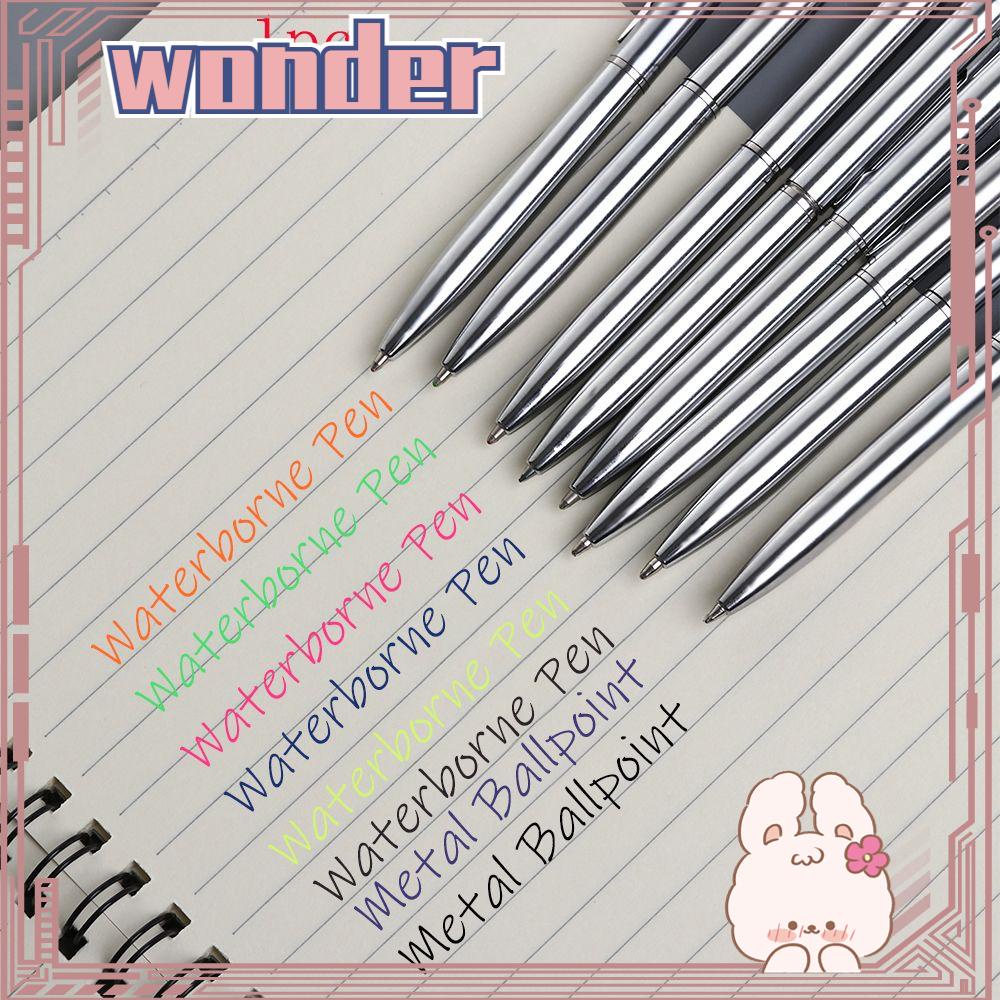 wonder
Waterborne Pen
Waterborne Pen
Waterborne Pen
Waterborne Pen
Waterborne Pen
Waterborne Pen
Metal Ballpoint
Metal Ballpoint